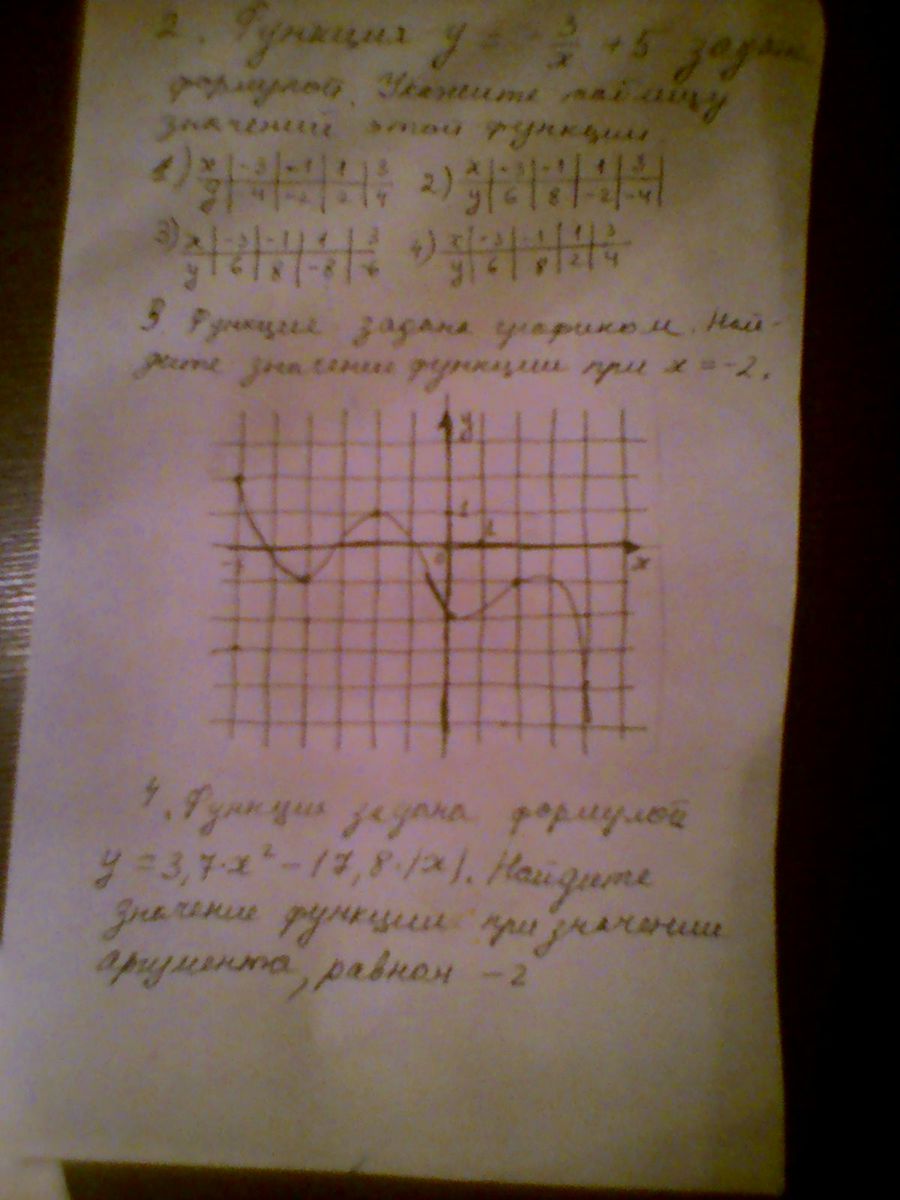 2. Функция y = -3/x + 5 задана
формулой. Укажите таблицу
значений этой функции
1) x | -3 | -1 | 1 | 3 2) x | -3 | -1 | 1 | 3
y | 4 | -2 | 2 | 4 y | 6 | 8 | -2 | -4
3) x | -3 | -1 | 1 | 3 4) x | -3 | -1 | 1 | 3
y | 6 | 8 | -8 | -6 y | 6 | 8 | 2 | 4
3 Функция задана графиком. Най-
дите значение функции при x = -2.
y
1
0 1 x
4. Функция задана формулой
y = 3,7·x² - 17,8·|x|. Найдите
значение функции при значении
аргумента, равном -2